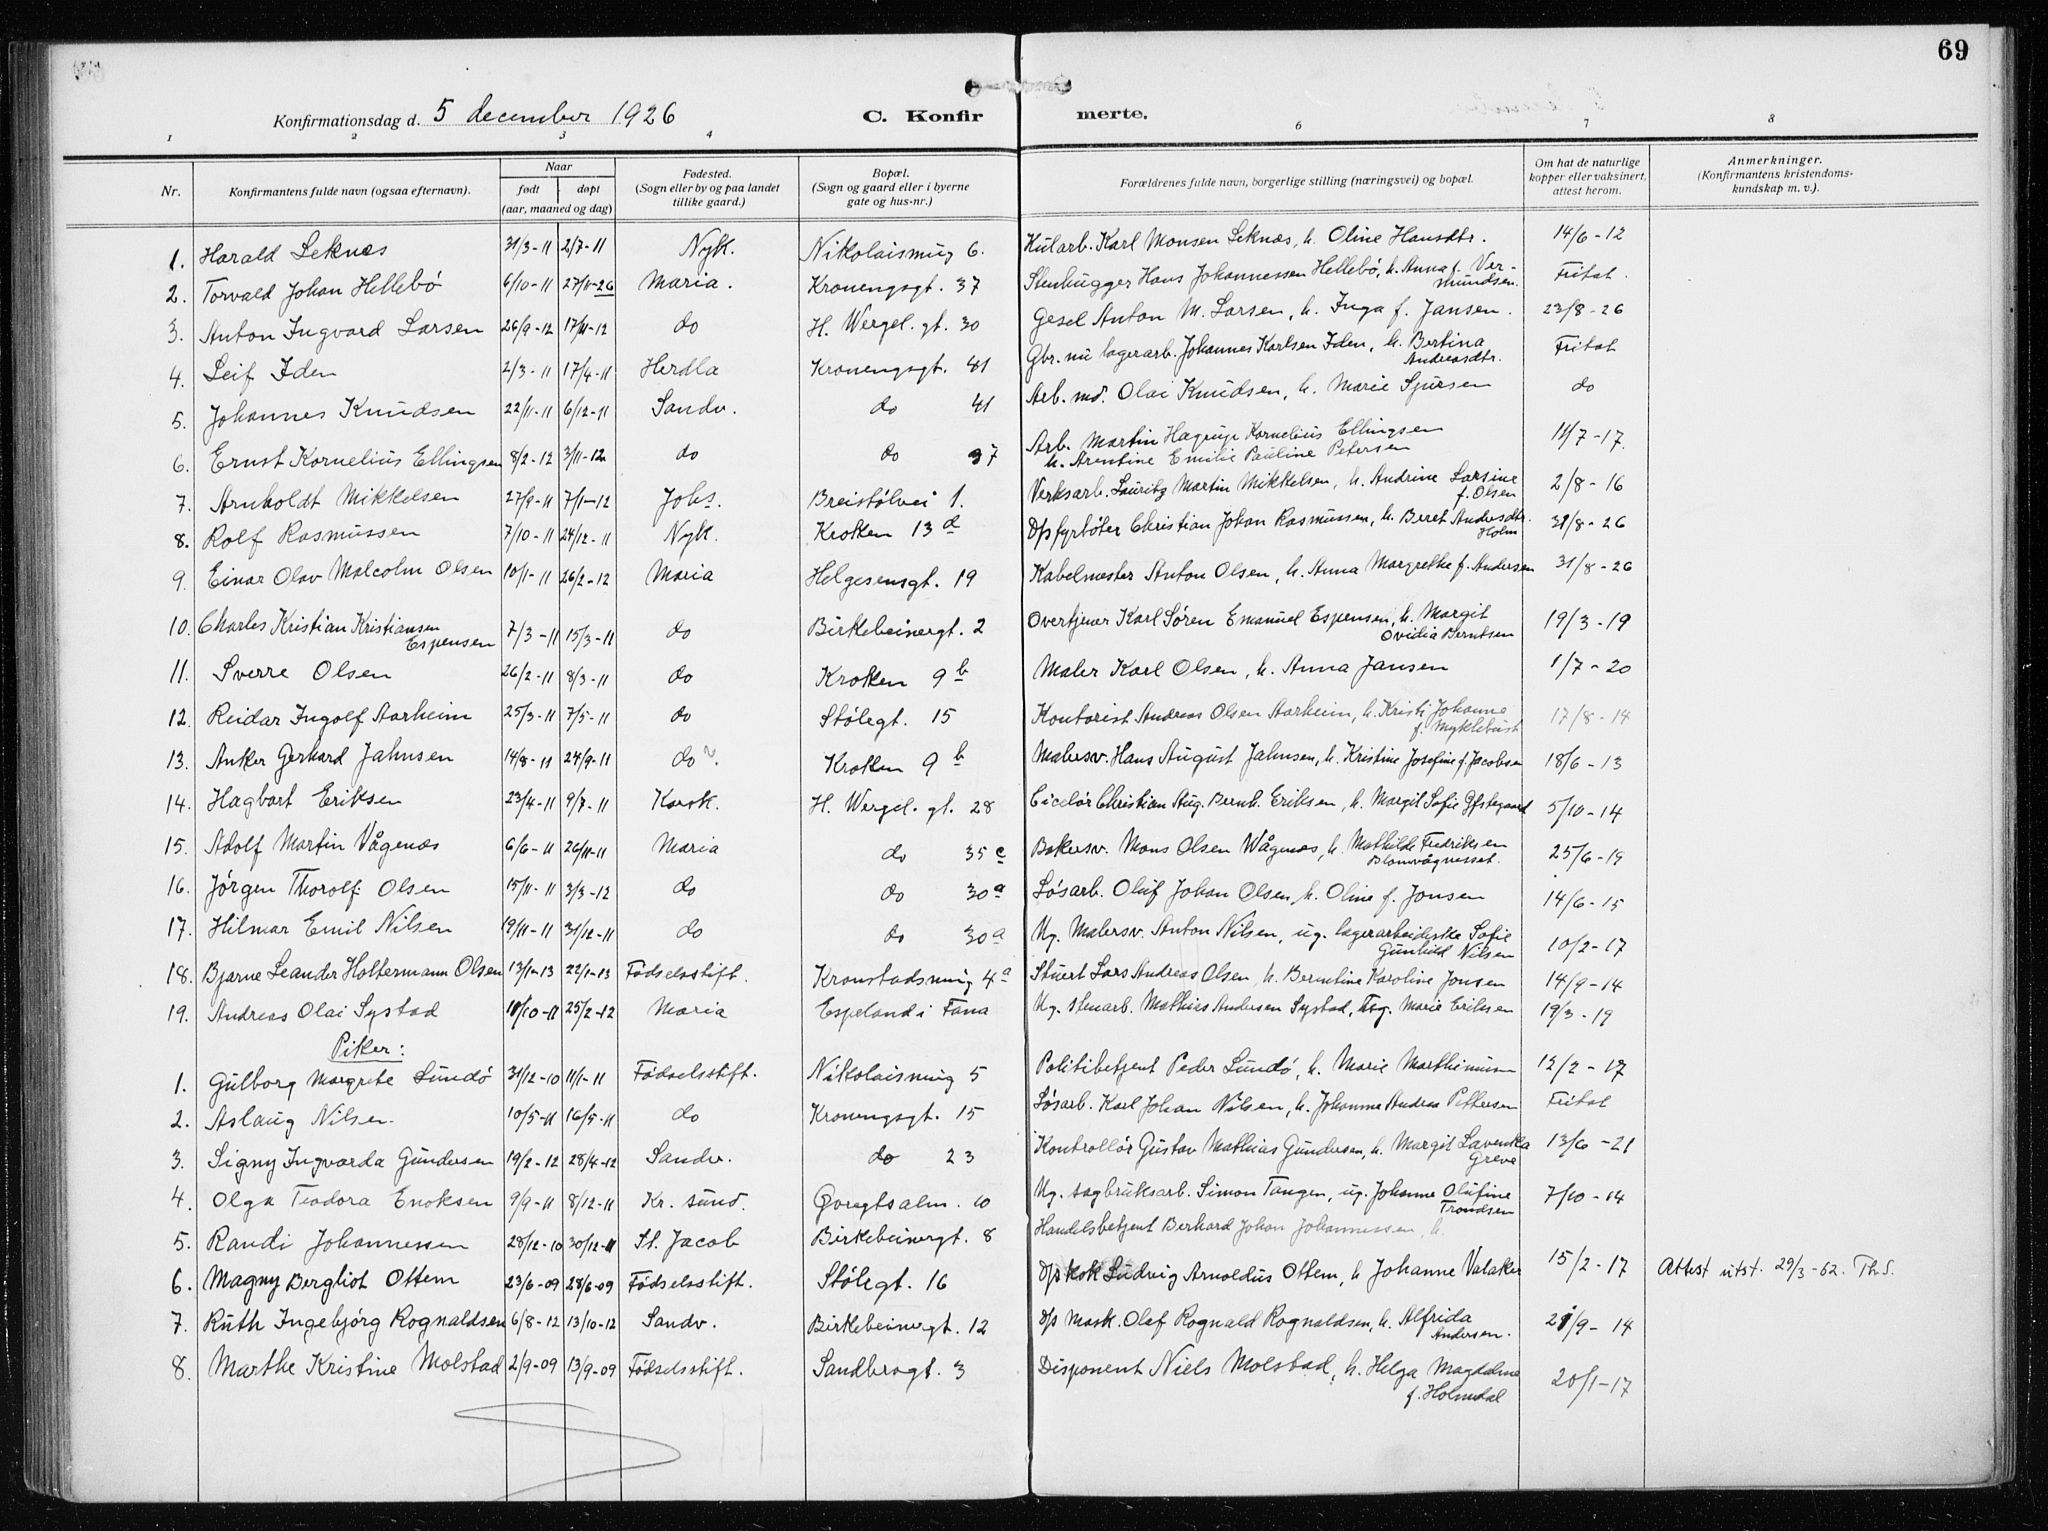 69
Konfirmationsdag d. 5 december 1926 C. Konfirmerte.
1 2 3 4 6 7 8
Nr. Konfirmantens fulde navn (ogsaa efternavn). Naar født døpt (aar, maaned og dag) Fødested. (Sogn eller by og paa landet tillike gaard.) Bopæl. (Sogn og gaard eller i byerne gate og hus-nr.) Forældrenes fulde navn, borgerlige stilling (næringsvei) og bopæl. Om hat de naturlige kopper eller vaksinert, attest herom. Anmerkninger. (Konfirmantens kristendomskundskap m. v.).
1. Harald Leknæs 31/3-11 2/7-11 Nyk. Nikolaismug 6. Kularb. Karl Monsen Leknæs, h. Oline Hansdtr. 14/6-12
2. Torvald Johan Hellebö 6/10-11 27/11-26 Maria. Kronengsgt. 37 Stenhugger Hans Johannessen Hellebö, h. Anna f. Vermundsen. Fritat.
3. Anton Ingvard Larsen 26/9-12 17/11-12 do H. Wergel. gt. 30 Gesel Anton M. Larsen, h. Inga f. Jansen. 23/8-26
4. Leif Iden 2/3-11 17/4-11 Herdla Kronengsgt. 41 Gbr. nu lagerarb. Johannes Karlsen Iden, h. Bertina Andreasdtr. Fritat
5. Johannes Knudsen 22/11-11 6/12-11 Sandv. do 41 Arb. md. Olai Knudsen, h. Marie Sjursen do
6. Ernst Kornelius Ellingsen 8/2-12 3/11-12 do do 37 Arb. Martin Hagrup Kornelius Ellingsen h. Arentine Emilie Pauline Petersen 11/7-17.
7. Arnholdt Mikkelsen 27/9-11 7/1-12 Johs. Breistölvei 1. Verksarb. Lauritz Martin Mikkelsen, h. Andrine Larsine f. Olsen 2/8-16
8. Rolf Rasmussen 7/10-11 24/12-11 Nyk. Kroken 13 d D/s fyrböter Christian Johan Rasmussen, h. Beret Andersdtr. Holm 31/8-26
9. Einar Olav Malcolm Olsen 10/1-11 26/2-12 Maria Helgesensgt. 19 Kabelmester Anton Olsen, h. Anna Margrethe f. Andersen 31/8-26
10. Charles Kristian Kristiansen Espensen 7/3-11 15/3-11 do Birkebeinergt. 2 Overtjener Karl Sören Emanuel Espensen, h. Margit Ovidia Berntsen 19/3-19
11. Sverre Olsen 26/2-11 8/3-11 do Kroken 9 b Maler Karl Olsen, h. Anna Jansen 1/7-20
12. Reidar Ingolf Aarheim 25/3-11 7/5-11 do Stölegt. 15 Kontorist Andreas Olsen Aarheim, h. Kristi Johanne f. Myklebust 17/8-14
13. Anker Gerhard Jahnsen 14/8-11 24/9-11 do Kroken 9 b Malersv. Hans August Jahnsen, h. Kristine Josefine f. Jacobsen 18/6-13
14. Hagbart Eriksen 23/4-11 9/7-11 Korsk. H. Wergel. gt. 28 Ciselör Christian Aug. Bernh. Eriksen, h. Margit Sofie 5/10-14
15. Adolf Martin Vågenæs 6/6-11 26/11-11 Maria do 35 c Bakersv. Mons Olsen Wågenæs, h. Mathilde Fredriksen Blomvågnesset. 25/6-19
16. Jörgen Thorolf Olsen 15/11-11 3/3-12 do do 30 a Lösarb. Oluf Johan Olsen, h. Oline f. Jonsen 14/6-15
17. Hilmar Emil Nilsen 19/11-11 31/12-11 do do 30 a Ug. Malersv. Anton Nilsen, ug. lagerarbeiderske Sofie Gunhild Nilsen 10/2-17
18. Bjarne Leander Holtermann Olsen 13/1-13 22/1-13 Födselsstift. Kronstadsmug 4 a Stuert Lars Andreas Olsen, h. Berntine Karoline Jonsen 14/9-14
19. Andreas Olai Systad 11/10-11 25/2-12 Maria Espeland i Fana Ug. stenarb. Mathias Andersen Systad, Marie Eriksen 19/3-19
Piker:
1. Gulborg Margrete Lundö 31/12-10 11/1-11 Födselsstift. Nikolaismug 5 Politibetjent Peder Lundö, h. Marie Marthinusen 12/2-17
2. Aslaug Nilsen. 10/5-11 16/5-11 do Kronengsgt. 15 Lösarb. Karl Johan Nilsen, h. Johanne Andrea Pettersen Fritat
3. Signy Ingvarda Gundersen 19/2-12 28/4-12 Sandv. do 23 Kontrollör Gustav Mathias Gundersen, h. Margit Laventha Greve 13/6-21
4. Olga Teodora Enoksen 9/9-11 8/12-11 Kr. sund. Øvregtsalm. 10 Ug. sagbruksarb. Simon Tangen, ug. Johanne Olufine Trondsen 7/10-14
5. Randi Johannessen 28/12-10 30/12-11 St. Jacob Birkebeinergt. 8 Handelsbetjent Berhard Johan Johannessen, h.
6. Magny Bergliot Ottem 23/6-09 28/6-09 Födselsstift. Stölegt. 16 D/s kok Ludvig Arnoldus Ottem, h Johanne Valaker 15/2-17 Attest utst. 29/3-62. Th.S.
7. Ruth Ingebjørg Rognaldsen 6/8-12 13/10-12 Sandv. Birkebeinergt. 12 D/s Mask. Olaf Rognald Rognaldsen, h. Alfrida Andersen. 21/9-14
8. Marthe Kristine Molstad 2/9-09 13/9-09 Födselsstift. Sandbrogt. 3 Disponent Niels Molstad, h. Helga Magdalene f. Holmdal 20/1-17